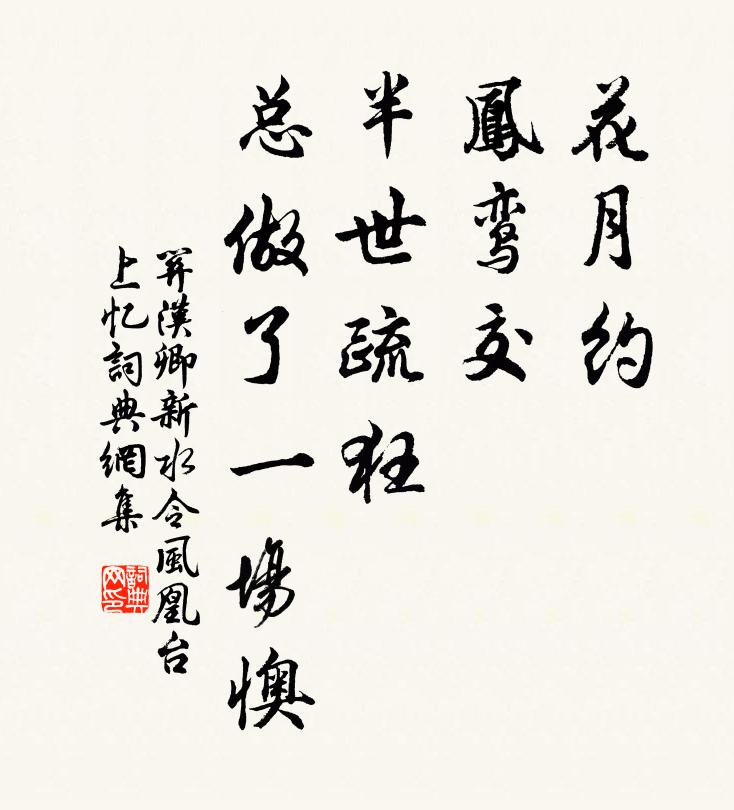 花月约
鳳鸾交
半世疏狂
总做了一場懊
関漢卿新水令風凰台
上忆詞典網集
詞典网印